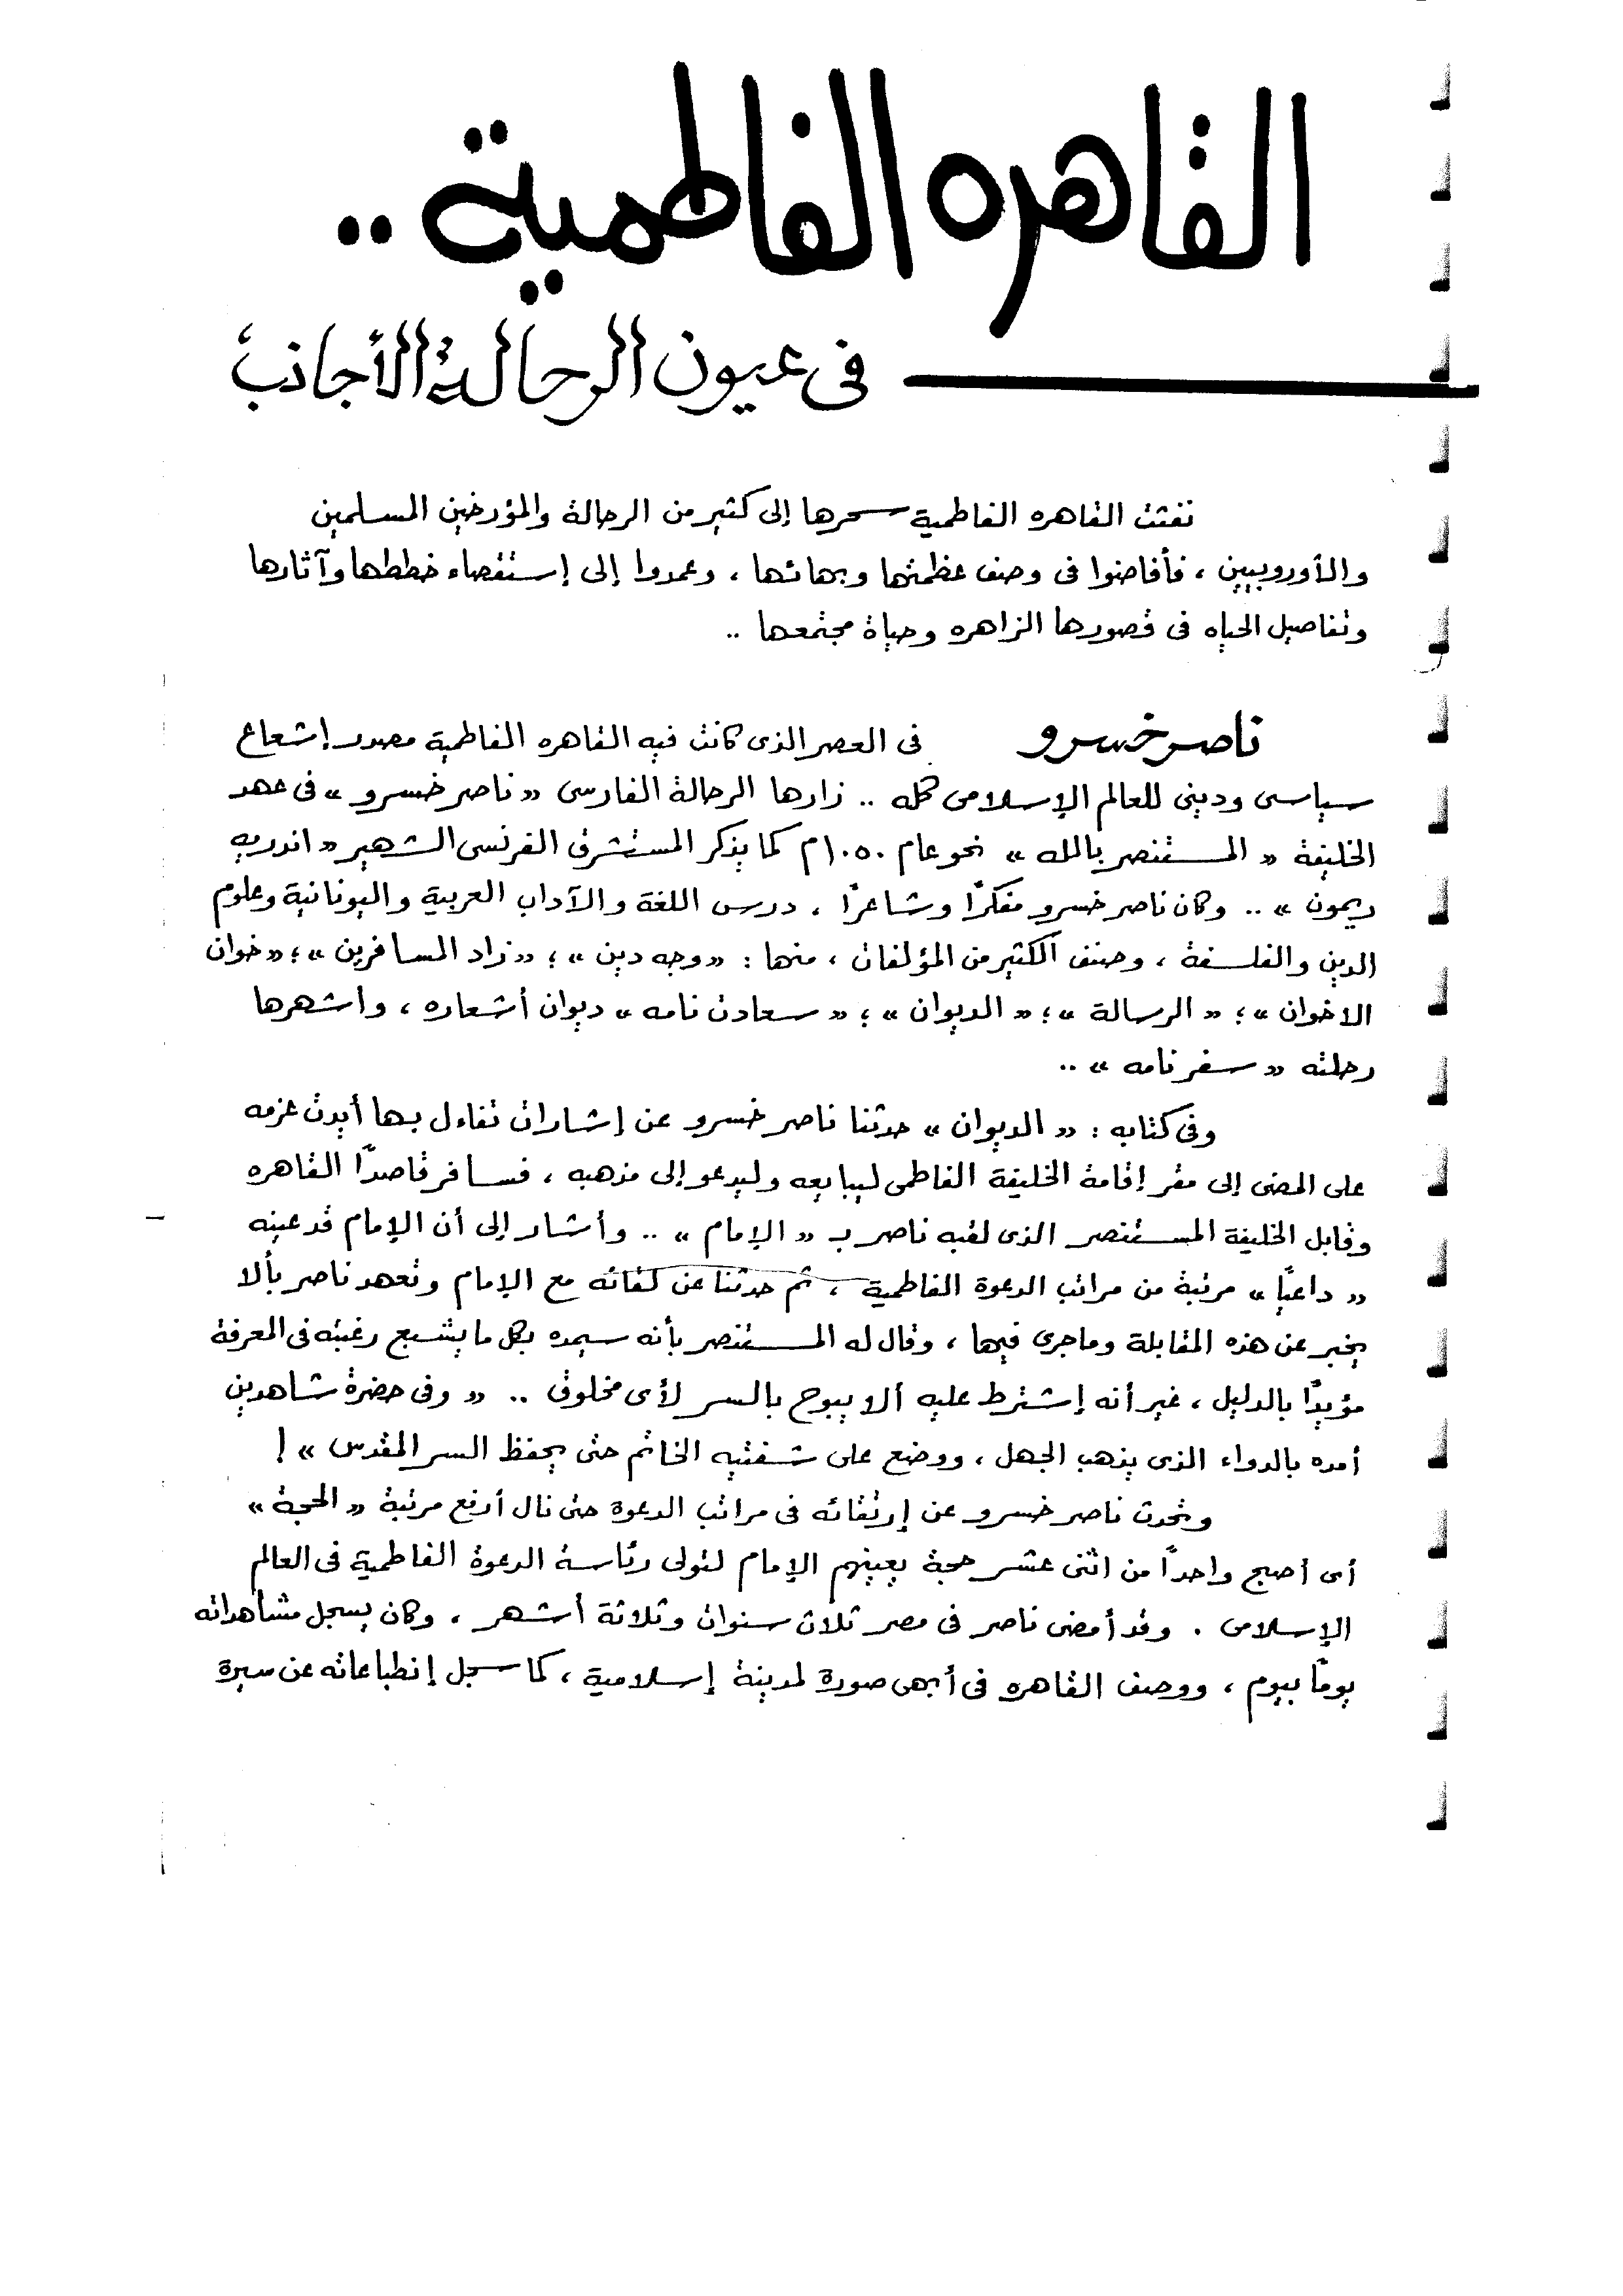 القاهره الفاطمية ..
فى عيون الرحالة الأجانب
نفثت القاهره الفاطمية سحرها إلى كثير من الرحالة والمؤرخين المسلمين
والأوروبيين ، فأفاضوا فى وصف عظمتها وبهائها ، وعمدوا إلى إستقصاء خططها وآثارها
وتفاصيل الحياه فى قصورها الزاهره وحياة مجتمعها ..
ناصر خسرو فى العصر الذى كانت فيه القاهره الفاطمية مصدر إشعاع
سياسى ودينى للعالم الإسلامى كله .. زارها الرحالة الفارسى « ناصر خسرو » فى عهد
الخليفة « المستنصر بالله » نحو عام ١٠٥٠م كما يذكر المستشرق الفرنسى الشهير « اندريه
ريمون » .. وكان ناصر خسرو مفكرًا وشاعرًا ، درس اللغة والآداب العربية واليونانية وعلوم
الدين والفلسفة ، وصنف الكثير من المؤلفات ، منها : « وجه دين » ؛ « زاد المسافرين » ؛ « خوان
الاخوان » ؛ « الرسالة » ؛ « الديوان » ؛ « سعادت نامه » ديوان أشعاره ، وأشهرها
رحلته « سفرنامه » ..
وفى كتابه : « الديوان » حدثنا ناصر خسرو عن إشارات تفاءل بها أيدت عزمه
على المضى إلى مقر إقامة الخليفة الفاطمى ليبايعه وليدعو إلى مذهبه ، فسافر قاصدًا القاهره
وقابل الخليفة المستنصر الذى لقبه ناصر بـ « الإمام » .. وأشار إلى أن الإمام قد عينه
« داعيًا » مرتبة من مراتب الدعوة الفاطمية ، ثم حدثنا عن لقائه مع الإمام وتعهد ناصر بألا
يخبر عن هذه المقابلة وماجرى فيها ، وقال له المستنصر بأنه سيمده بكل ما يشبع رغبته فى المعرفة
مؤيدًا بالدليل ، غير أنه إشترط عليه ألا يبوح بالسر لأى مخلوق .. « وفى حضرة شاهدين
أمده بالدواء الذى يذهب الجهل ، ووضع على شفتيه الخاتم حتى يحفظ السر المقدس » !
وتحدث ناصر خسرو عن إرتقائه فى مراتب الدعوة حتى نال أرفع مرتبة « الحجة »
أى أصبح واحدًا من اثنى عشر حجة يعينهم الإمام لتولى رئاسة الدعوة الفاطمية فى العالم
الإسلامى . وقد أمضى ناصر فى مصر ثلاث سنوات وثلاثة أشهر ، وكان يسجل مشاهداته
يومًا بيوم ، ووصف القاهره فى أبهى صورة لمدينة إسلامية ، كما سجل إنطباعاته عن سيرة